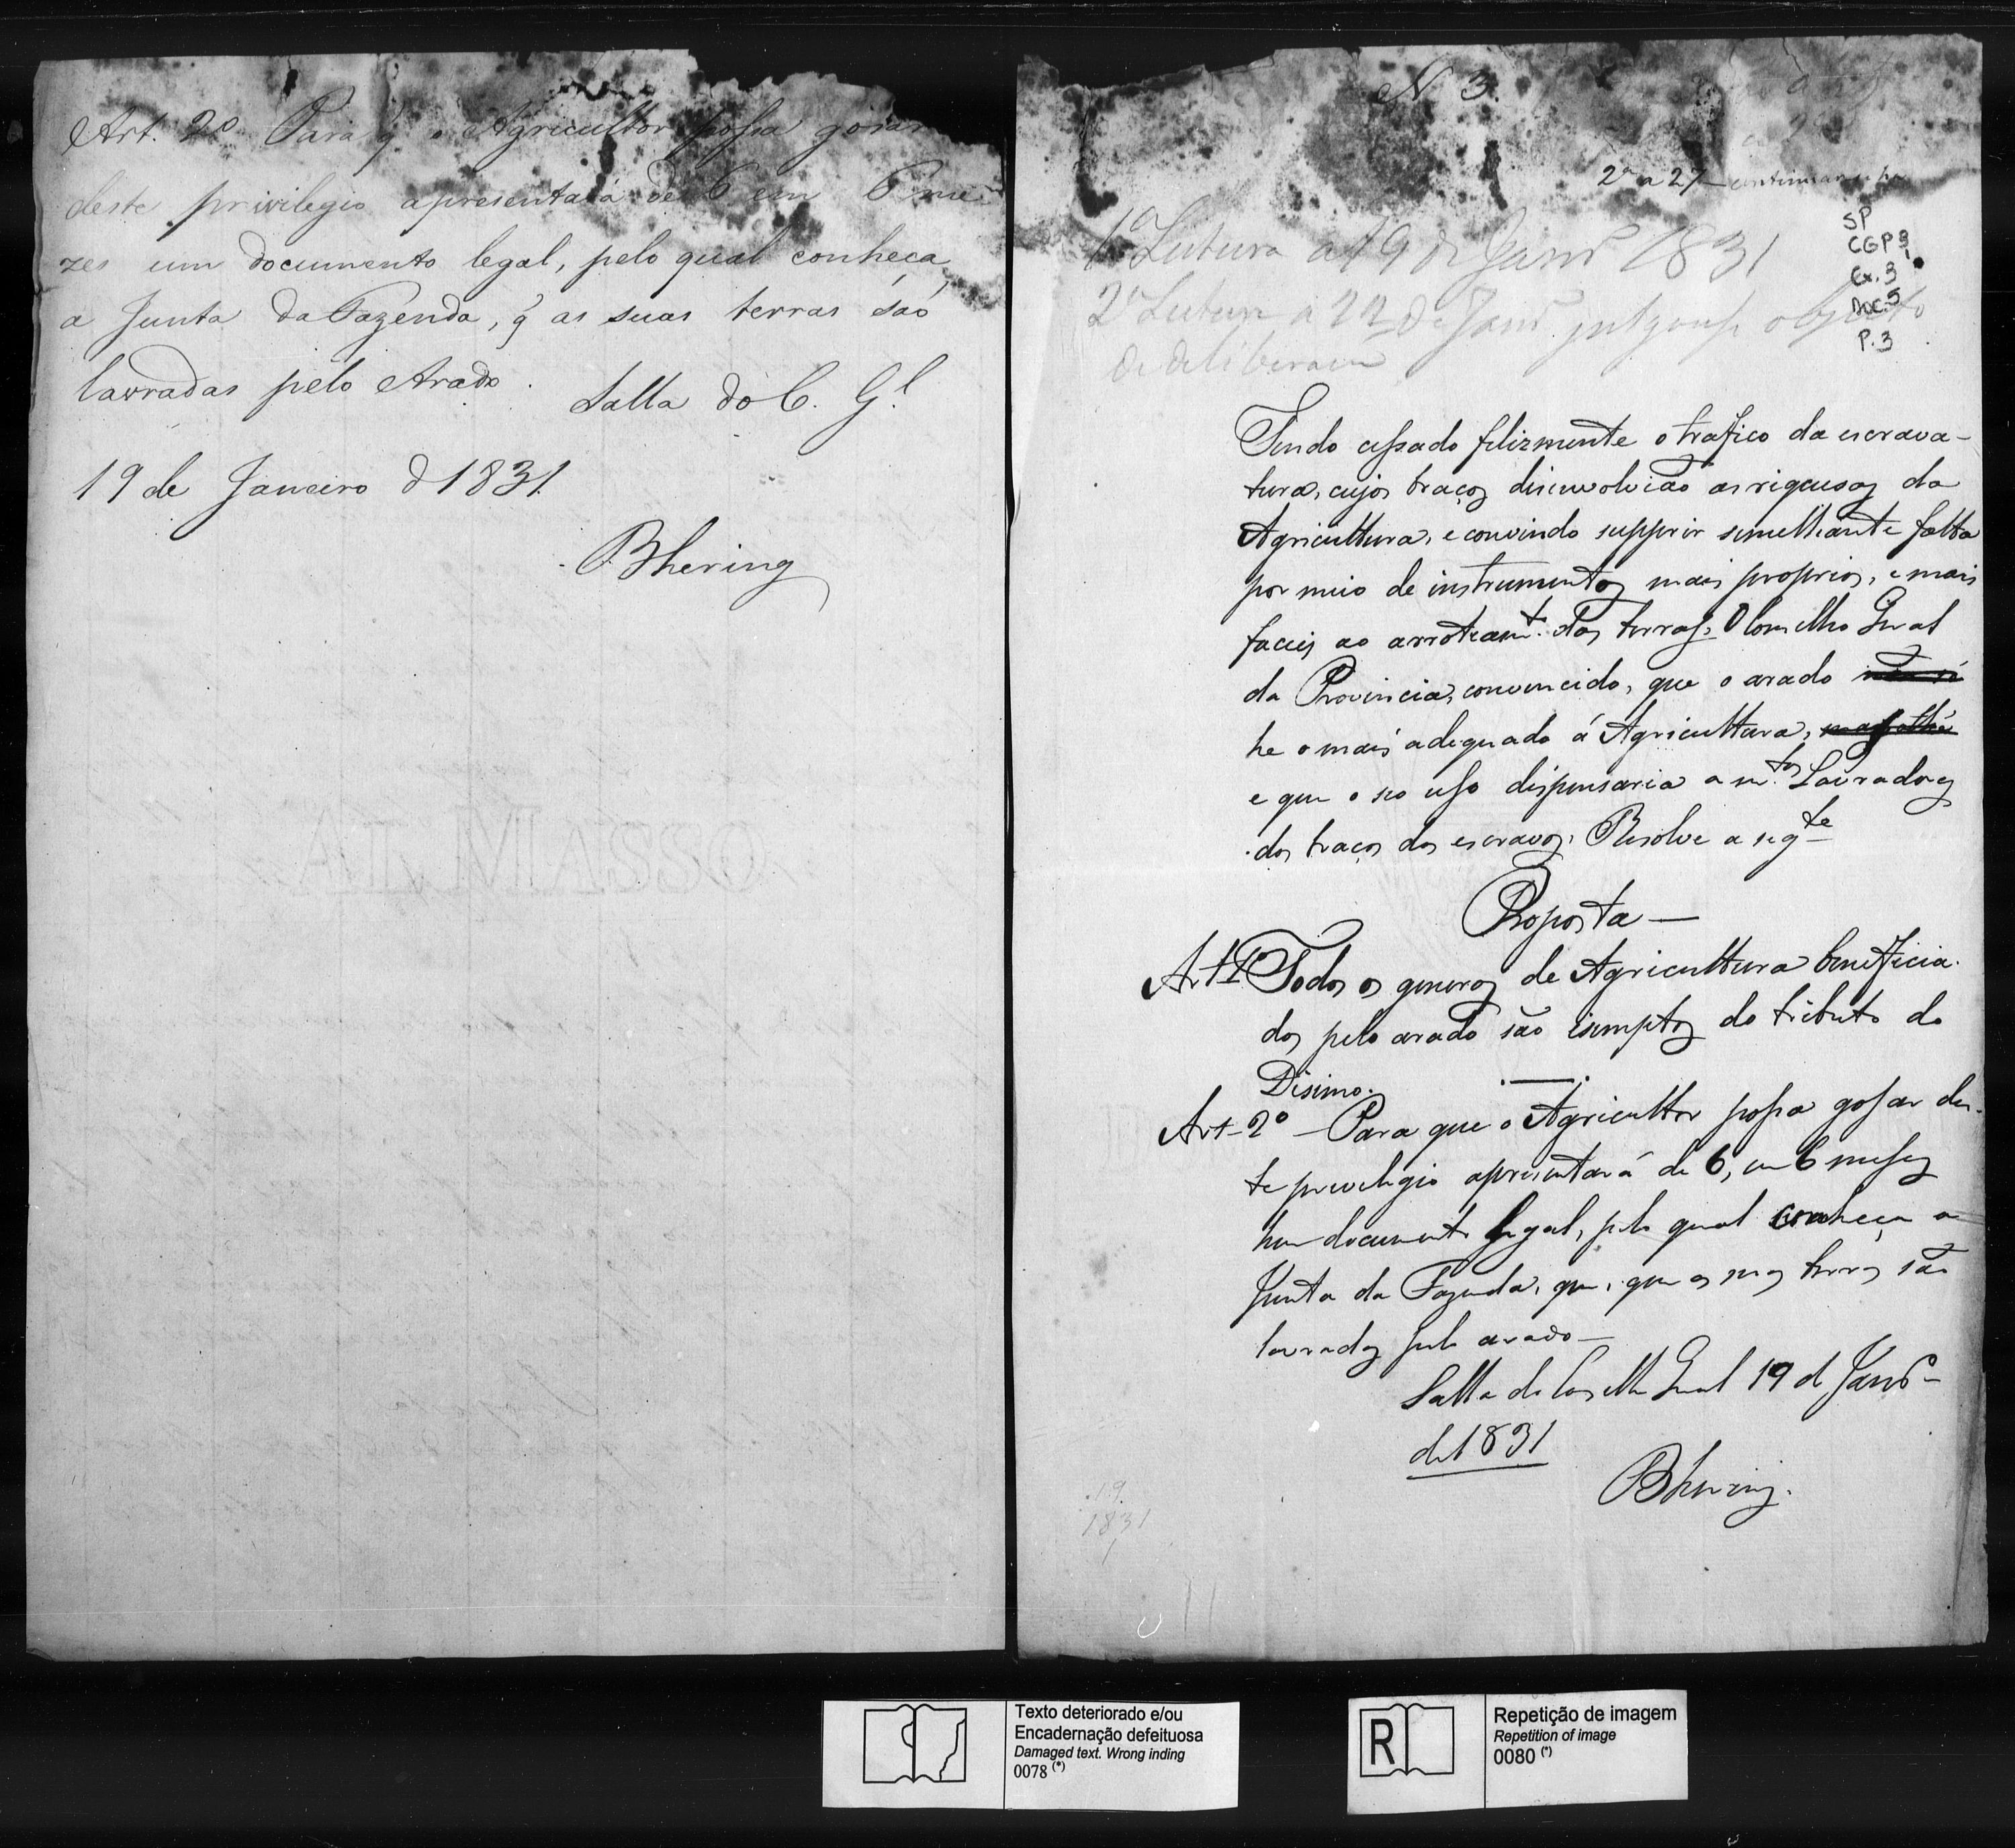 Art. 2º Para q̃ o Agricultor possa gosar
deste privilegio apresentará de 6 em 6 me
zes um documento legal, pelo qual conheça
a Junta da Fazenda, q̃ as suas terras são
lavradas pelo Arado. Salla do C. G.l
19 de Janeiro d 1831.
Bhering
N 3.
2ª a 27
SP
CGP 3
Cx. 3
Doc. 5
P. 3
1ª Leitura a 19 de Janrº 1831
2ª Leitura a 22 de Janrº julgouse objecto
de deliberação
Tendo cessado felizmente o trafico da escrava-
tura, cujos braços disinvolvião as riquesas da
Agricultura, e convindo supprir similhante falta
por meio de instrumentos mais proprios, e mais
faceis ao arroteamt.º das terras, O Conselho Geral
da Provincia, convencido, que o arado não só
he o mais adequado á Agricultura,
e que o seo uso dispensaria a m.tos Lavradores
dos braços dos escravos, Resolve a segte
Proposta —
Art 1º Todos os generos de Agricultura beneficia-
dos pelo arado são isemptos do tributo do
Disimo.
Art 2º — Para que o Agricultor possa gosar des-
te previlegio apresentará de 6, em 6 meses
hum documento legal, pelo qual conheça a
Junta da Fazenda, que, que as suas terras são
lavradas pelo arado —
Salla do Conselho Geral 19 de Janrº
de 1831
Bhering.
19.
1831
Texto deteriorado e/ou
Encadernação defeituosa
Damaged text. Wrong inding
0078 (*)
R
Repetição de imagem
Repetition of image
0080 (*)